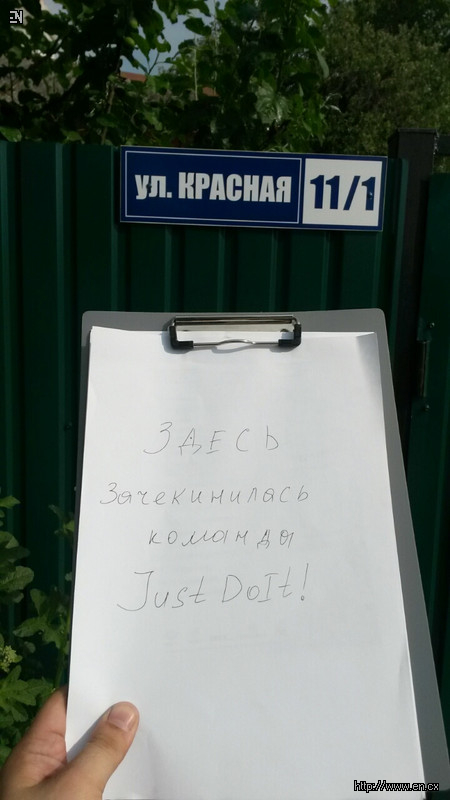 EN
ул. КРАСНАЯ 11/1
ЗДЕСЬ
Зачекинилась
команды
Just DoIt!
http://www.en.cx